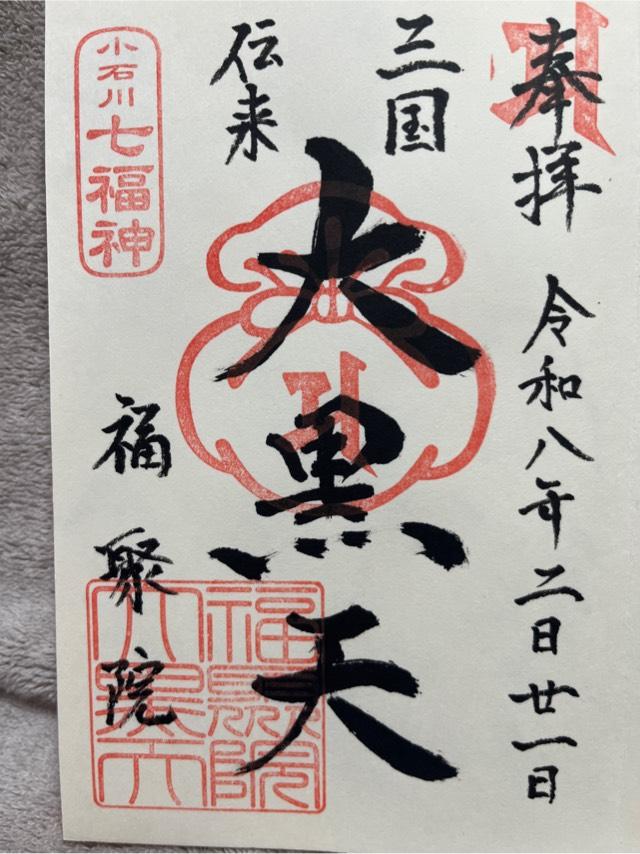 奉拝
令和八年二日廿一日
三国
伝来
大黒天
小石川七福神
福聚院
福聚院
大黒天